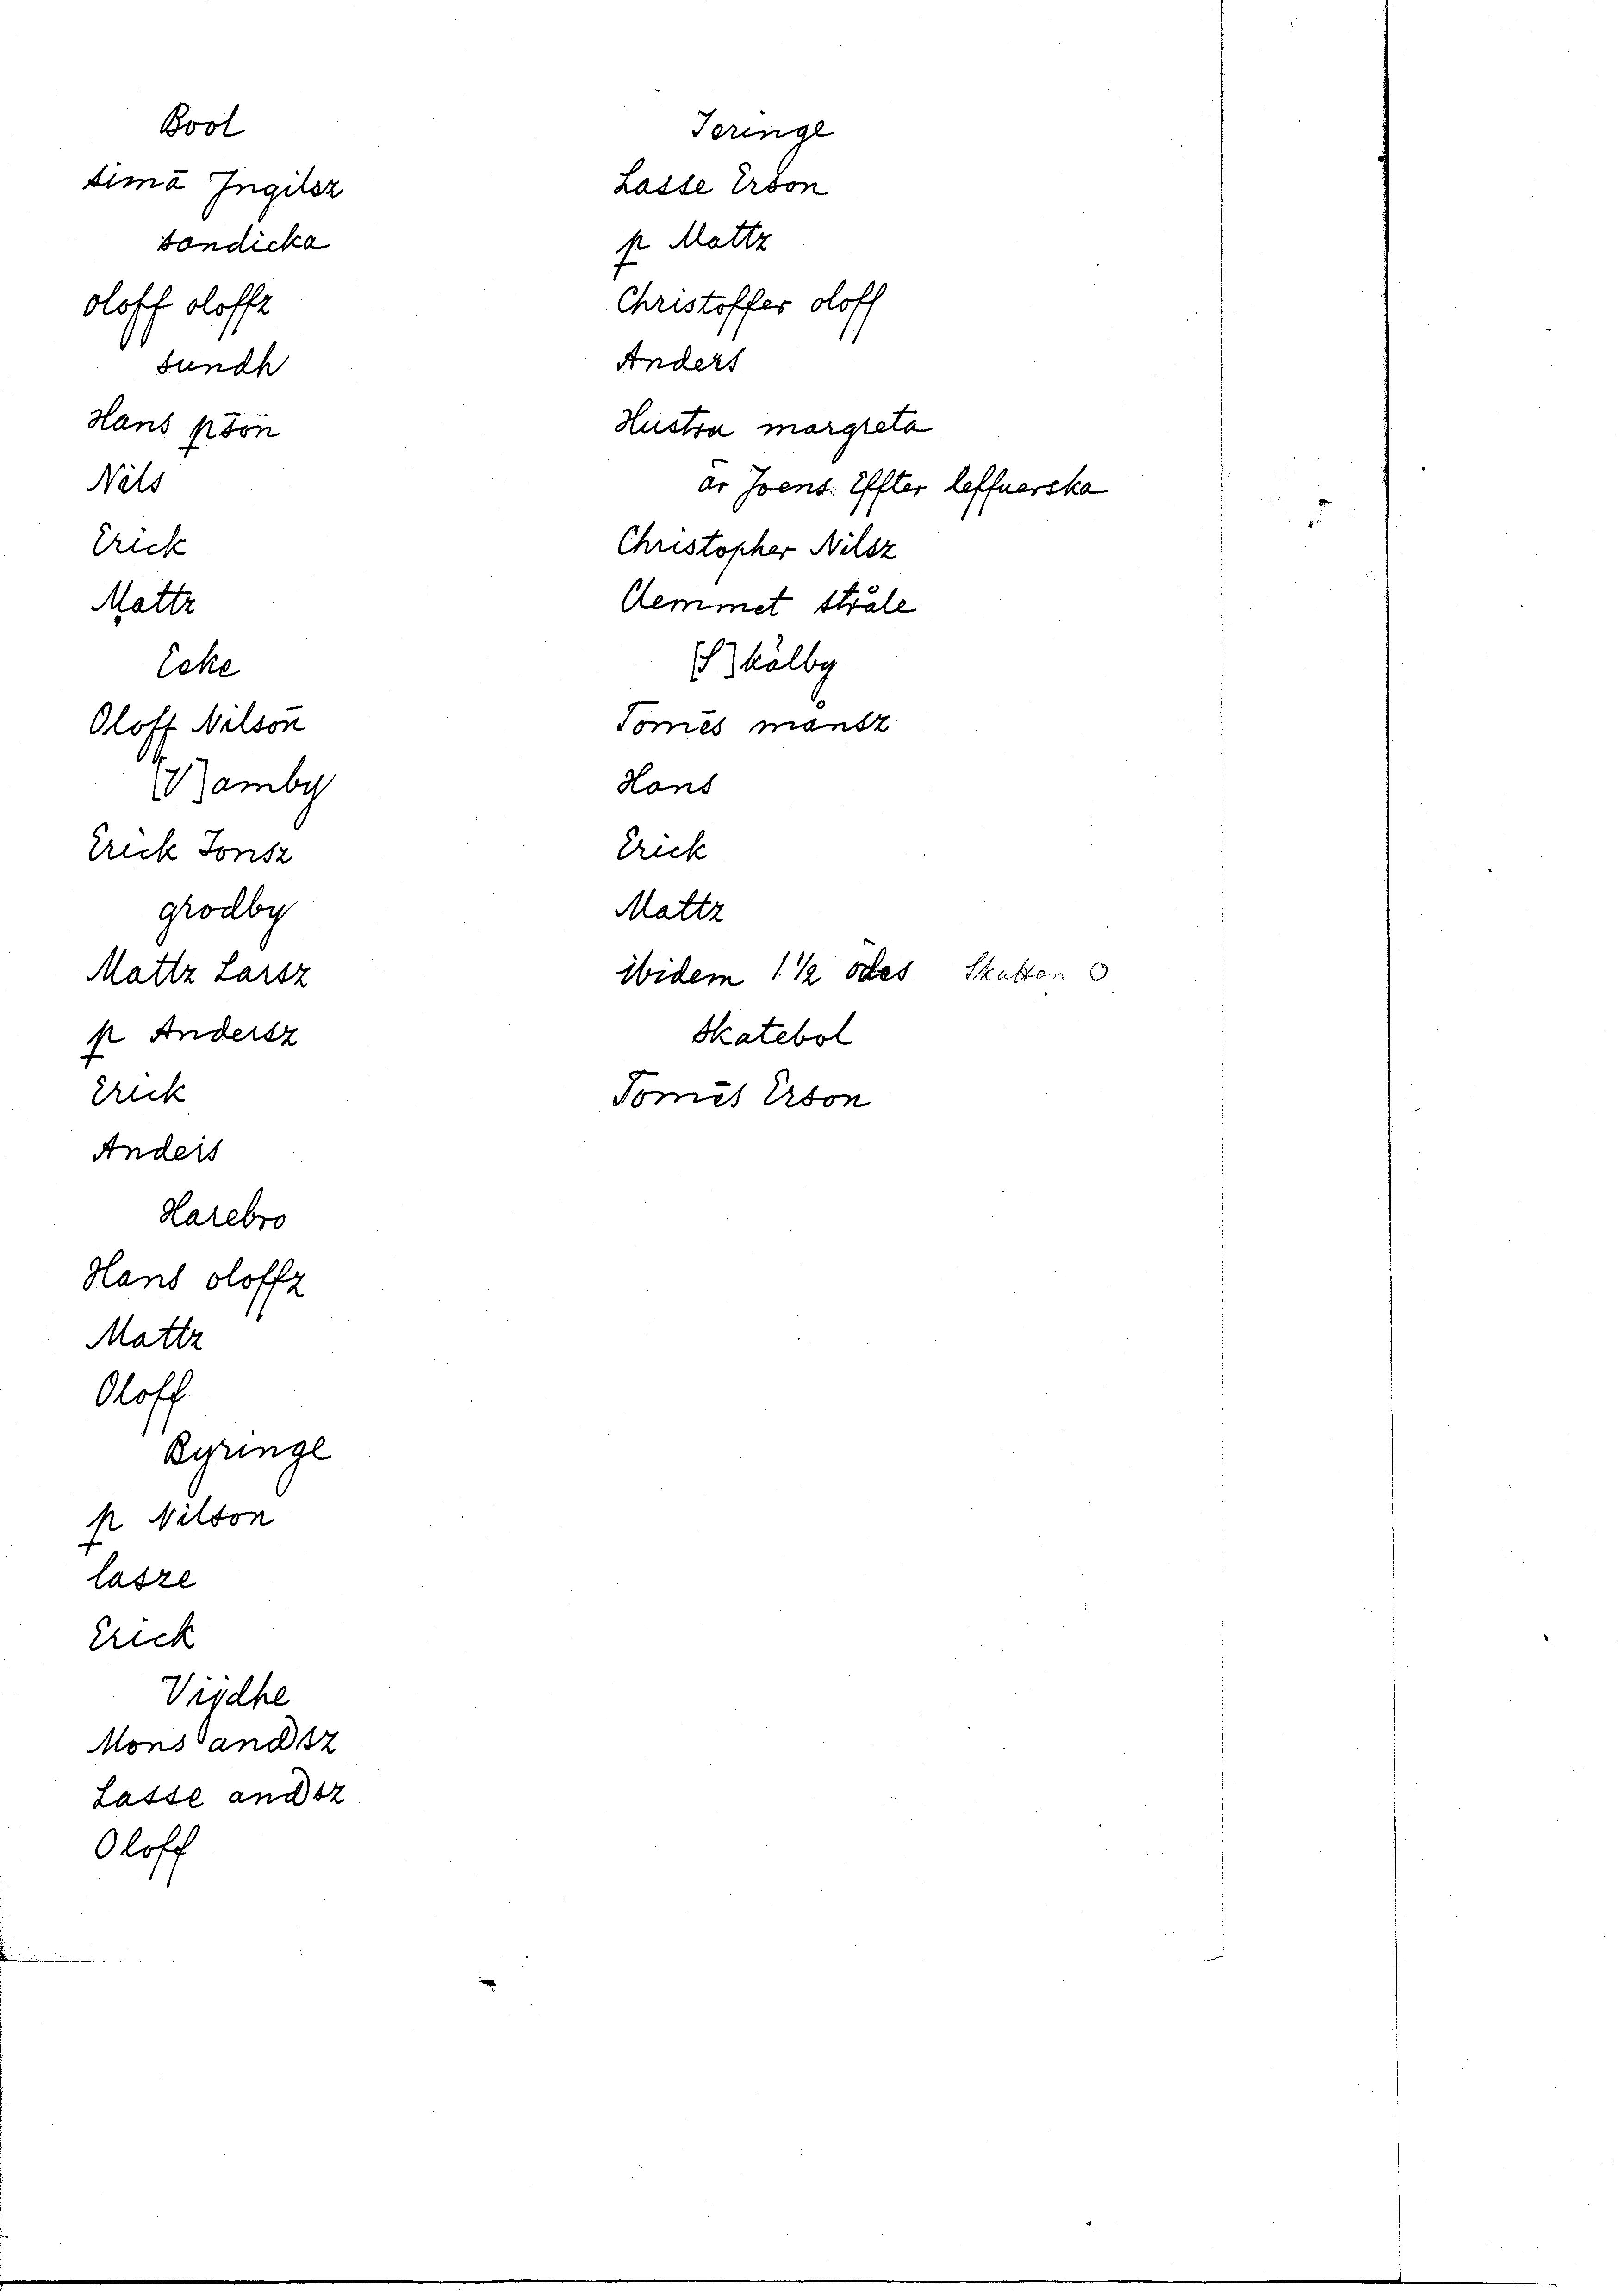 Bool
simā Ingilsz
sandicka
oloff oloffz
sundh
Hans pson
Nils
Erick
Mattz
Ecke
Oloff Nilson
[V]amby
Erick Jonsz
grodby
Mattz Larsz
p Andersz
Erick
Anders
Harebro
Hans oloffz
Mattz
Oloff
Ryringe
p Nilson
lasze
Erick
Vijdhe
Mons andsz
Lasse andsz
Oloff
Teringe
Lasse Erson
p Mattz
Christoffer oloff
Anders
Hustru margreta
är Joens. Effter leffuerska
Christopher Nilsz
Clemmet stråle
[S]kälby
Tomēs månsz
Hans
Erick
Mattz
ibidem 1 1/2 ödes Skatten 0
Skatebol
Tomēs Erson